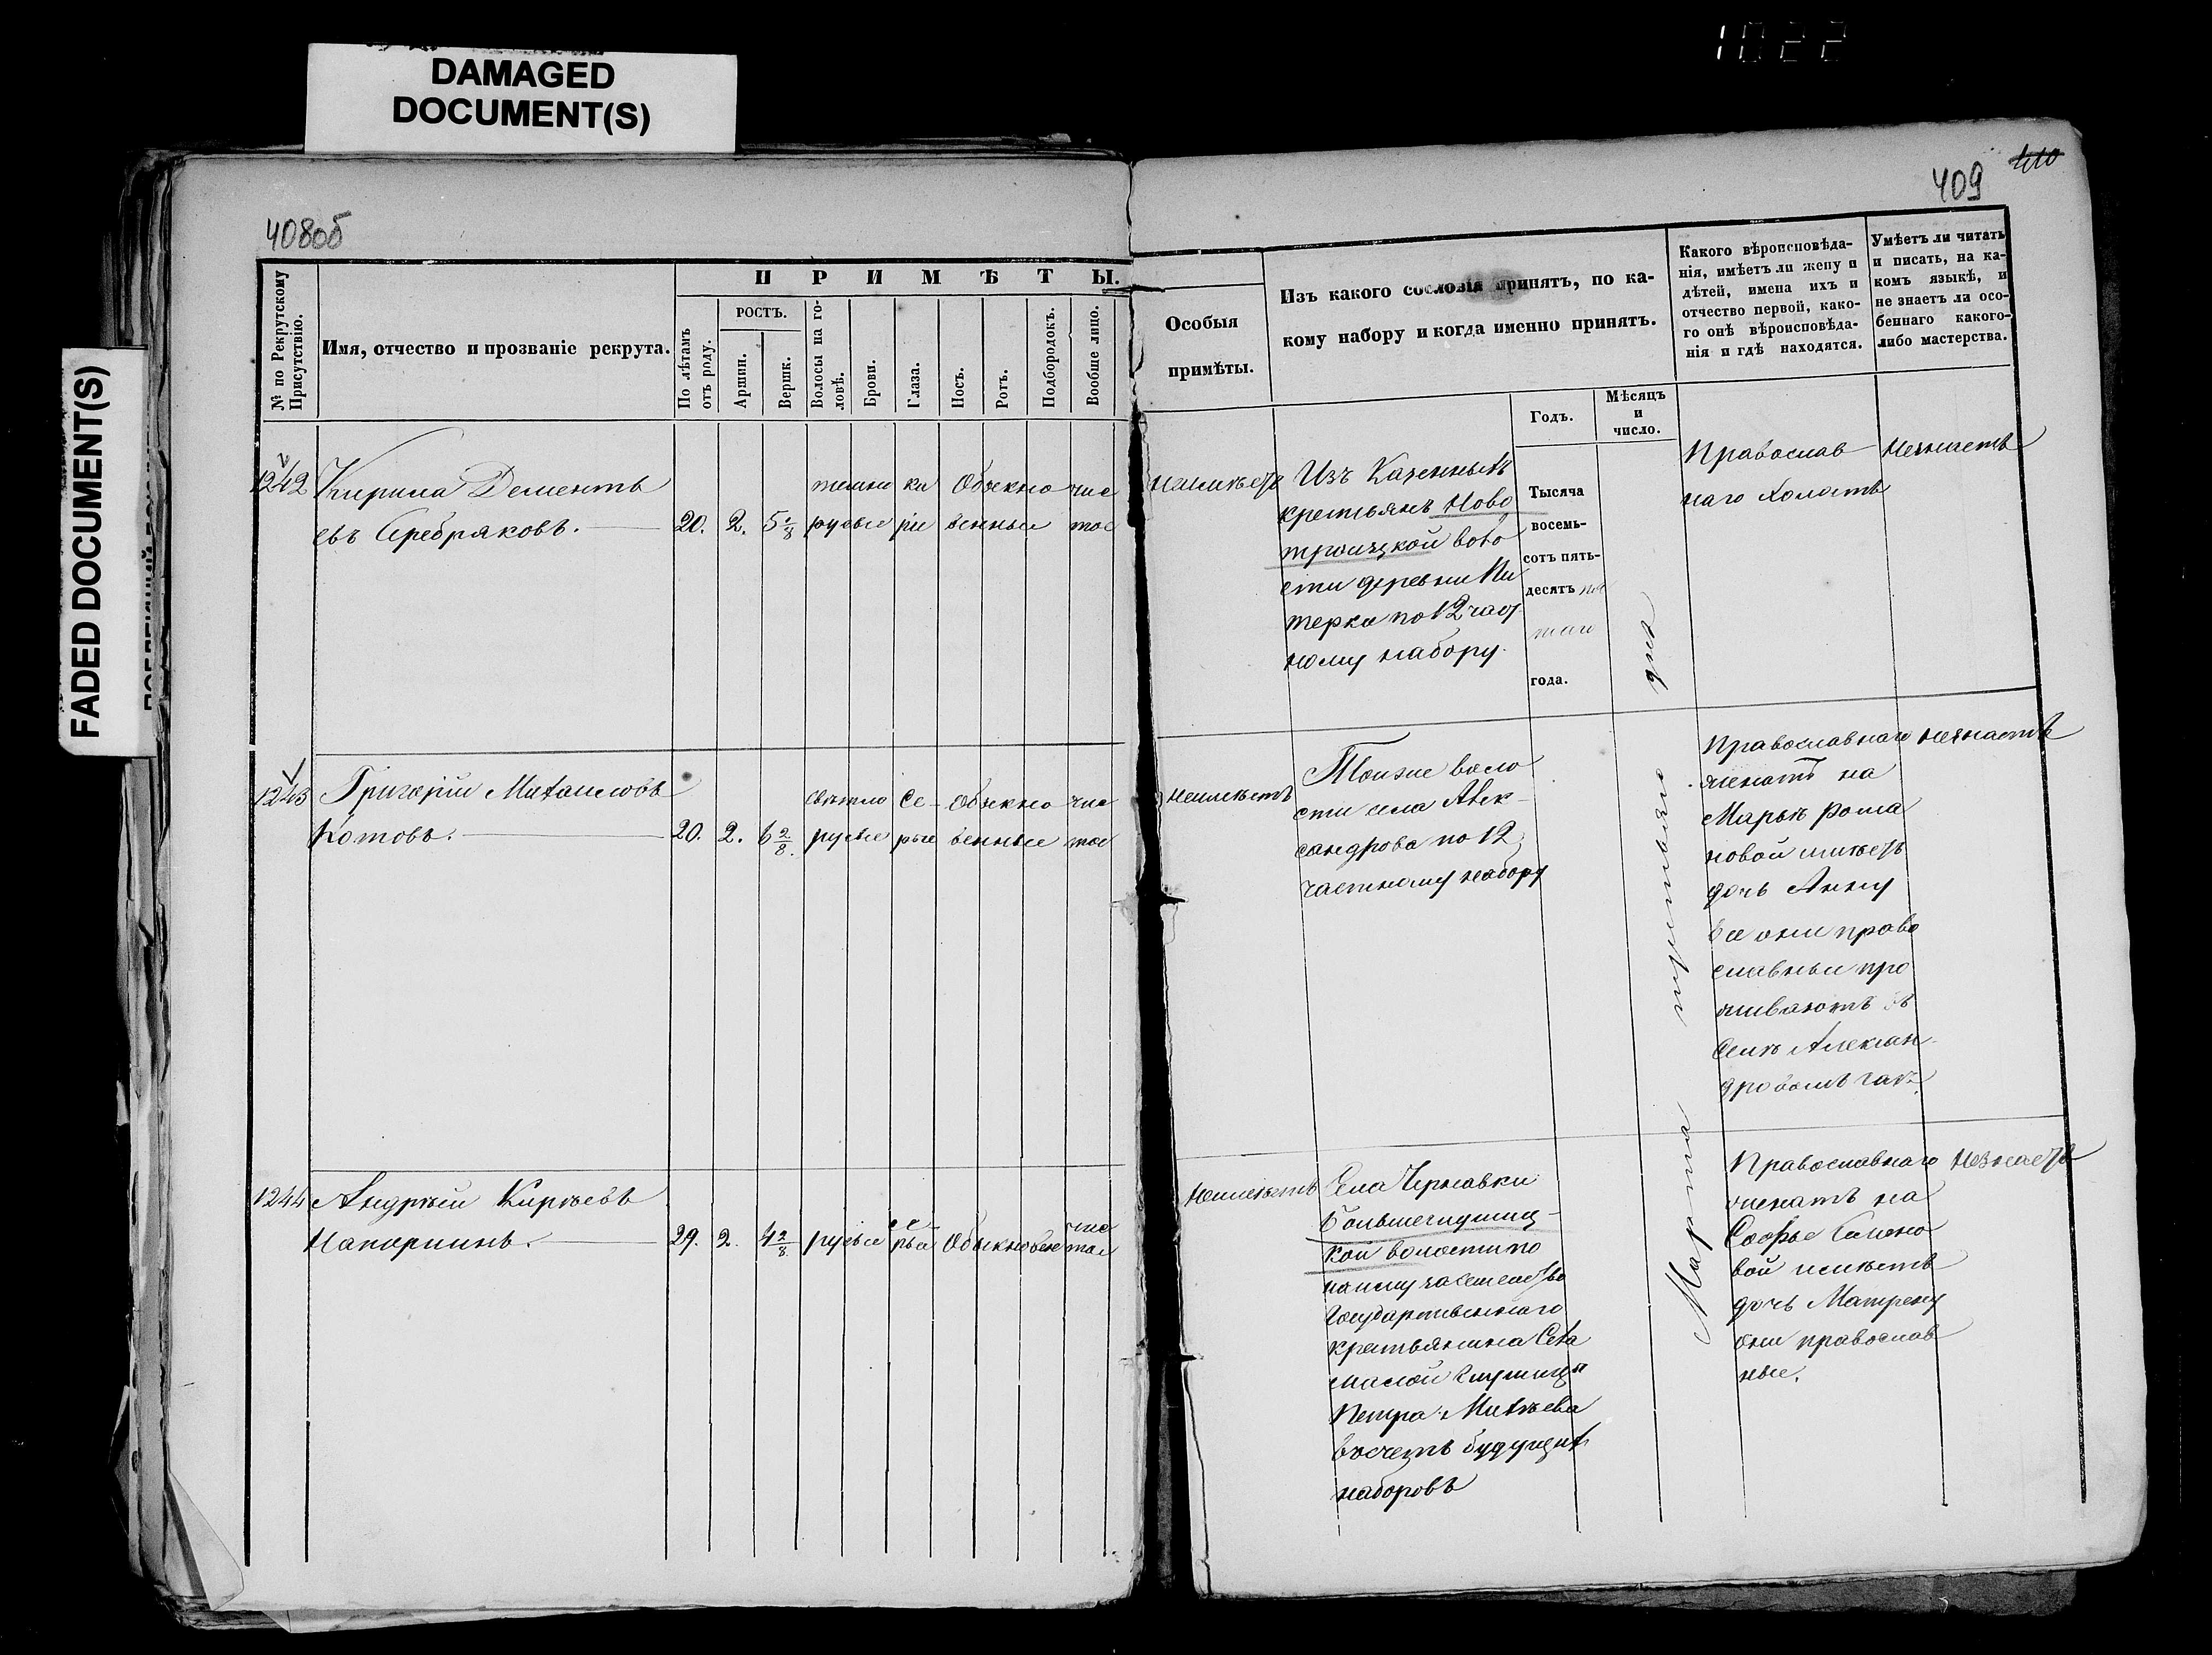 1022
DAMAGED
DOCUMENT(S)
FADED DOCUMENT(S)
408об
№ по Рекрутскому
Присутствію.
Имя, отчество и прозваніе рекрута.
ПРИМѢТЫ.
По лѣтамъ
отъ роду.
РОСТЪ.
Аршин.
Вершк.
Волосы на го-
ловѣ.
Брови.
Глаза.
Носъ.
Ротъ.
Подбородокъ.
Вообще лицо.
1242 Кирила Дементь темно ка Обыкно чис
евъ Серебряковъ. 20. 2. 5 /8 русые ріе венные тое
1243 Григорій Михаиловъ свѣтло Се- Обыкно чис
Котовъ. 20. 2. 6 2/8. русые рые венные тое
1244 Андрѣй Кирѣевъ се- чис
Напоркинъ. 29. 2. 4 2/8 русые рые Обыкновен тое
409
410
Особыя
примѣты.
Изъ какого сословія принятъ, по ка-
кому набору и когда именно принятъ.
Годъ.
Мѣсяцъ
и
число.
Какого вѣроисповѣда-
нія, имѣетъ ли жену и
дѣтей, имена ихъ и
отчество первой, како-
го онѣ вѣроисповѣда-
нія и гдѣ находятся.
Умѣетъ ли читать
и писать, на ка-
комъ языкѣ, и
не знаетъ ли осо-
беннаго какого-
либо мастерства.
неимѣетъ
Изъ Казенныхъ
крестьянъ Ново
троицкой воло
сти деревни Пи
терки по 12 част
ному набору.
Тысяча
восемь-
сотъ пять-
десятъ пя
таго
года.
Марта третьяго дня
Православ
наго холостъ
незнаетъ
неимѣетъ
Тойже воло
сти села Алек-
сандрова по 12
частному набору
Православнаго
женатъ на
Марьѣ Рома
новой имѣетъ
дочь Анну
все они право
славные про
живаютъ въ
Селѣ Алексан-
дровомъ гаѣ.
незнаетъ
неимѣетъ
Села Чернавки
Большеглушиц-
кой волости по
найму за семейство
Государственнаго
крестьянина Села
малой Глушицы
Петра Михѣева
въ счетъ будущихъ
наборовъ
Православнаго
женатъ на
Софье Семено
вой имѣетъ
дочь Матрену
они православ
ные.
незнаетъ